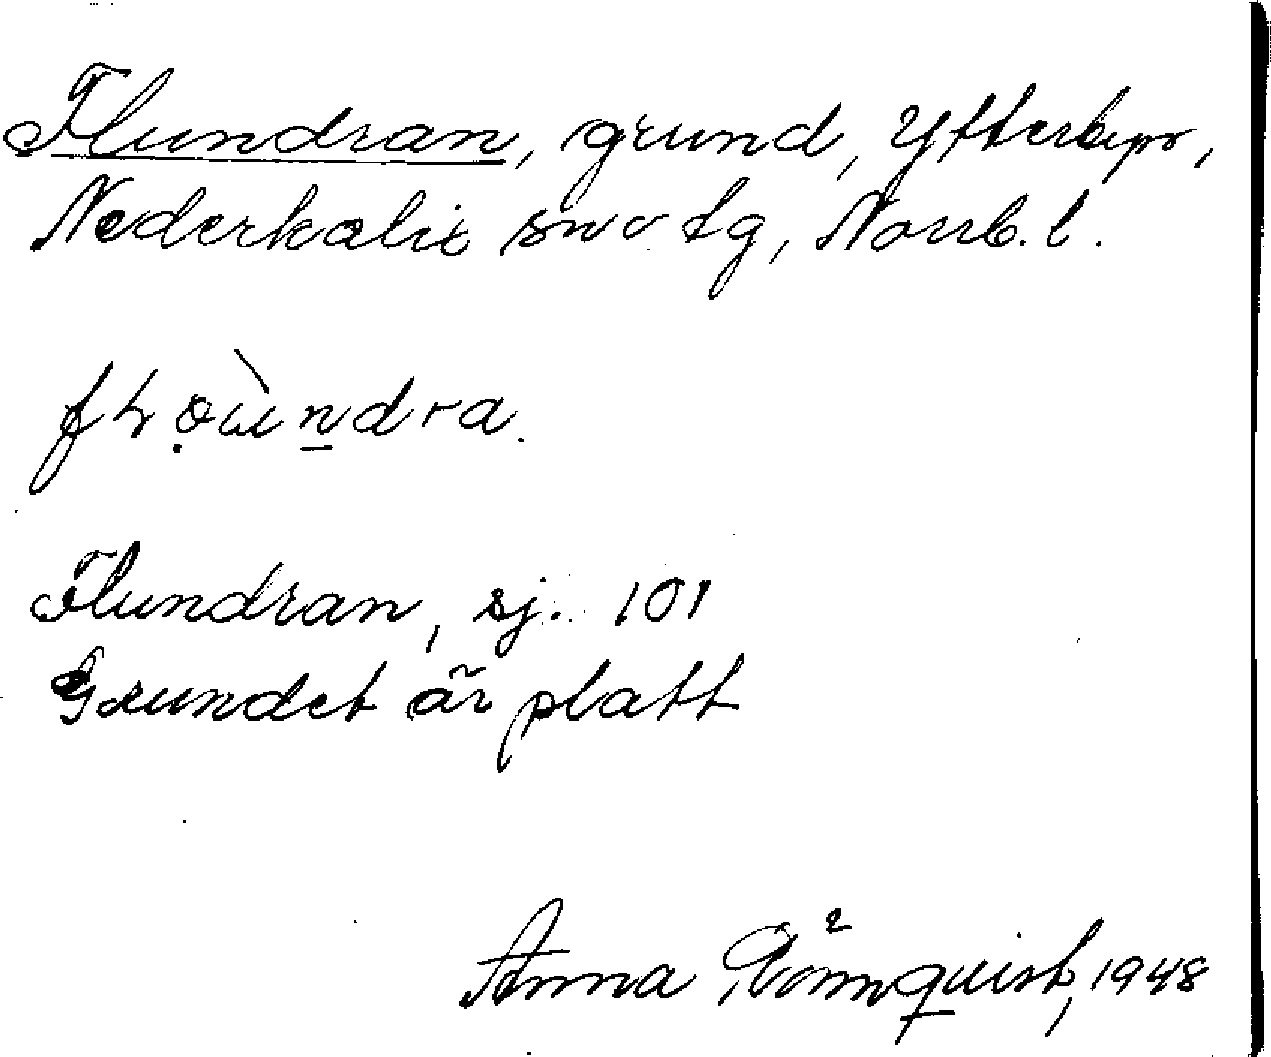 Flundran, grund, Ytterbyn,
Nederkalix sn o tg, Norrb. l.
Flundran, sj. 101
Grundet är platt
Anna Rönnquist, 1948